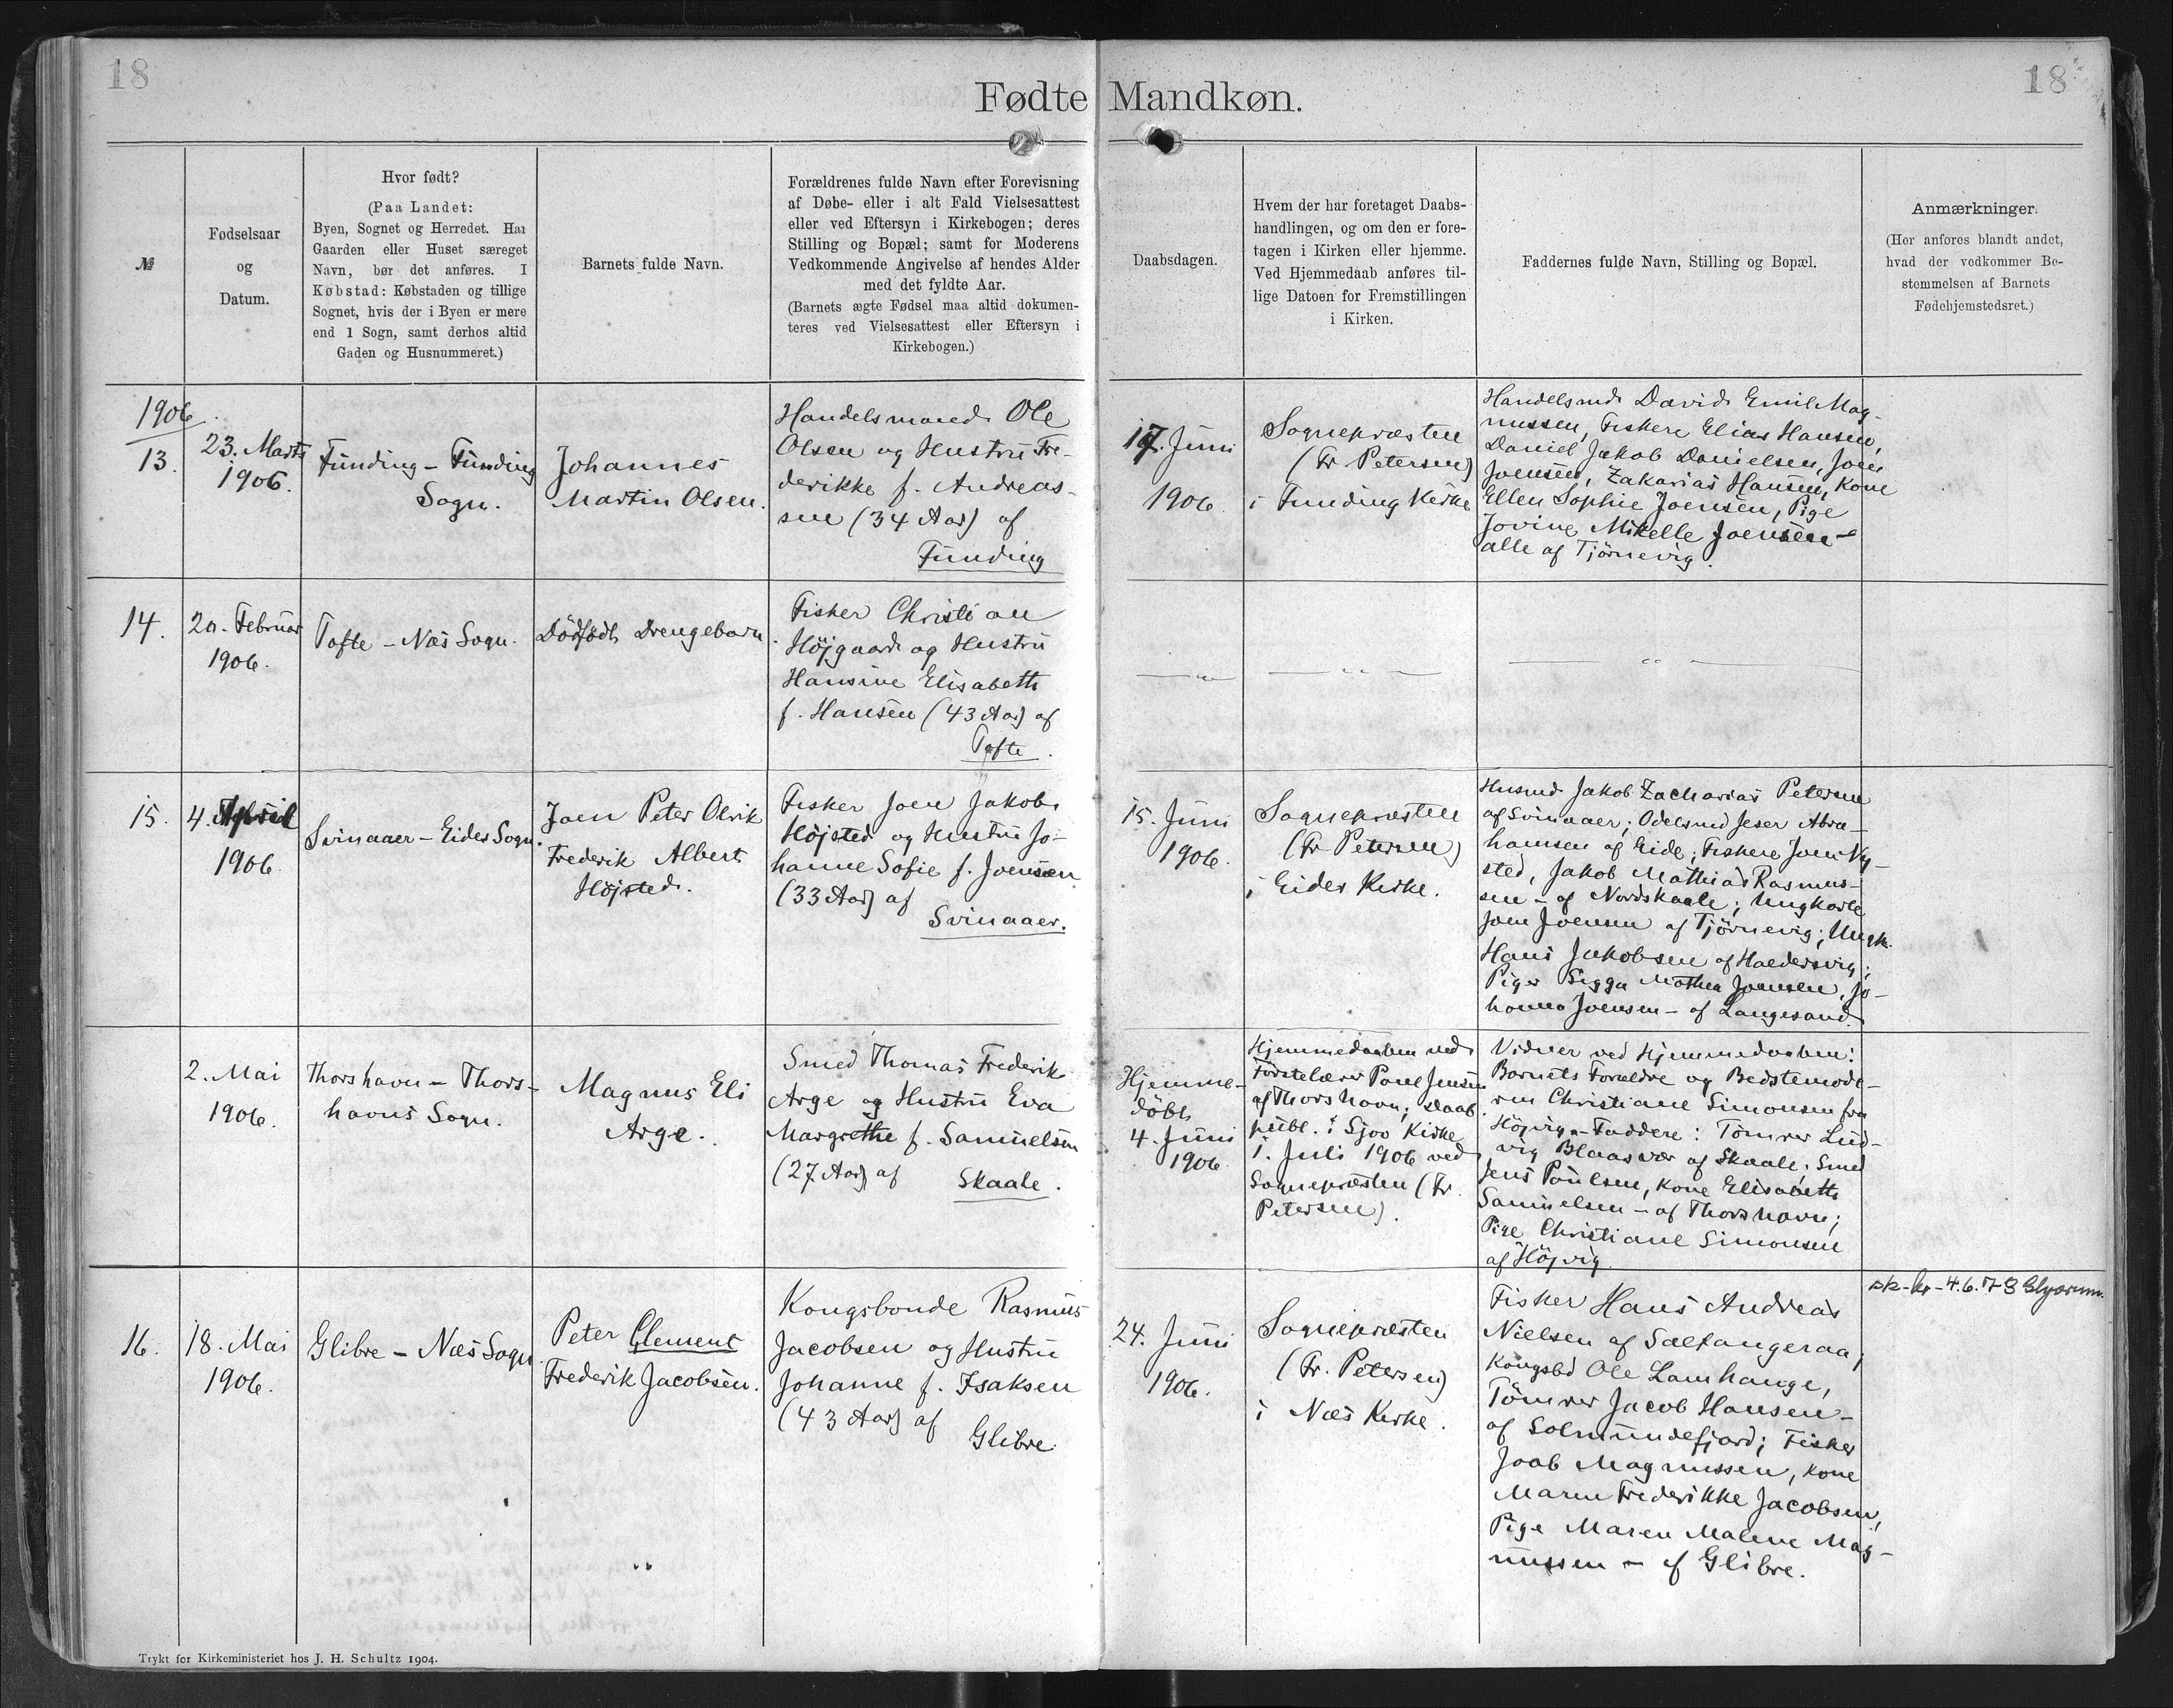 18
18
Fødte Mandkøn.
№
Fødselsaar
og
Datum.
Hvor født?
(Paa Landet:
Byen, Sognet og Herredet. Har
Gaarden eller Huset særeget
Navn, bør det anføres. I
Købstad: Købstaden og tillige
Sognet, hvis der i Byen er mere
end 1 Sogn, samt derhos altid
Gaden og Husnummeret.)
Barnets fulde Navn.
Forældrenes fulde Navn efter Forevisning
af Døbe- eller i alt Fald Vielsesattest
eller ved Eftersyn i Kirkebogen; deres
Stilling og Bopæl; samt for Moderens
Vedkommende Angivelse af hendes Alder
med det fyldte Aar.
(Barnets ægte Fødsel maa altid dokumen-
teres ved Vielsesattest eller Eftersyn i
Kirkebogen.)
Daabsdagen.
Hvem der har foretaget Daabs-
handlingen, og om den er fore-
tagen i Kirken eller hjemme.
Ved Hjemmedaab anføres til-
lige Datoen for Fremstillingen
i Kirken.
Faddernes fulde Navn, Stilling og Bopæl.
Anmærkninger.
(Her anføres blandt andet,
hvad der vedkommer Be-
stemmelsen af Barnets
Fødehjemstedsret.)
1906
13.
23. Marts
1906.
Funding - Funding
Sogn.
Johannes
Martin Olsen.
Handelsmand Ole
Olsen og Hustru Fre-
derikke f. Andreas-
sen (34 Aar) af
Funding
17. Juni
1906.
Sognepræsten
(Fr. Petersen)
i Funding Kirke
Handelsmd David Emil Mag-
nussen, Fiskere Elias Hansen,
Daniel Jakob Danielsen, Joen
Joensen, Zakarias Hansen, Kone
Ellen Sophie Joensen, Pige
Jovine Mikelle Joensen -
alle af Tjørnevig.
14.
20. Februar
1906.
Tofte - Næs Sogn.
Dödfödt Drengebarn.
Fisker Christian
Höjgaard og Hustru
Hansine Elisabeth
f. Hansen (43 Aar) af
Tofte.
— " —
— " —
— " —
15.
4. April
1906.
Svinaaer - Eides Sogn.
Joen Peter Olrik
Frederik Albert
Höjsted.
Fisker Joen Jakob
Höjsted og Hustru Jo-
hanne Sofie f. Joensen
(33 Aar) af
Svinaaer.
15. Juni
1906.
Sognepræsten
(Fr. Petersen)
i Eides Kirke.
Husmd Jakob Zacharias Petersen
af Svinaaer; Odelsmd Jeser Abra-
hamsen af Eide; Fiskere Joen Ny-
sted, Jakob Mathias Rasmus-
sen - af Nordskaale; Ungkarle
Joen Joensen af Tjørnevig; Ungk.
Hans Jakobsen af Haldersvig;
Piger Sigga Mathea Joensen, Jo-
hanna Joensen - af Langesand.
2. Mai
1906.
Thorshavn - Thors-
havns Sogn.
Magnus Eli
Arge.
Smed Thomas Frederik
Arge og Hustru Eva
Margrethe f. Samuelsen
(27 Aar) af
Skaale.
Hjemme-
döbt
4. Juni
1906
Hjemmedaaben ved
Förstelærer Poul Jensen
af Thorshavn; Daab.
publ. i Sjov Kirke
1. Juli 1906 ved
Sognepræsten (Fr.
Petersen).
Vidner ved Hjemmedaaben:
Barnets Forældre og Bedstemode-
ren Christiane Simonsen fra
Höjvig - Faddere: Tömrer Lud-
vig Blaasvær af Skaale; Smed
Jens Poulsen, Kone Elisabeth
Samuelsen - af Thorshavn;
Pige Christiane Simonsen
af Höjvig.
16.
18. Mai
1906.
Glibre - Næs Sogn.
Peter Clement
Frederik Jacobsen.
Kongsbonde Rasmus
Jacobsen og Hustru
Johanne f. Isaksen
(43 Aar) af
Glibre
24. Juni
1906.
Sognepræsten
(Fr. Petersen)
i Næs Kirke.
Fisker Hans Andreas
Nielsen af Saltangeraa;
Kongsbd Ole Lamhauge,
Tömrer Jacob Hansen -
af Solmundefjord; Fisker
Joab Magnussen, Kone
Maren Frederikke Jacobsen,
Pige Maren Malene Mag-
nussen - af Glibre.
4.6.73
Trykt for Kirkeministeriet hos J. H. Schultz 1904.